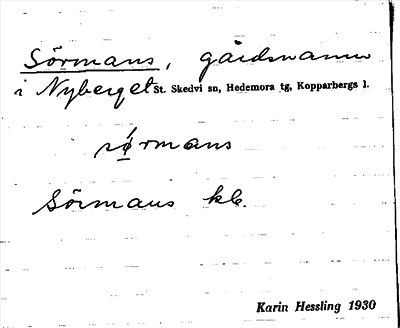 Sörmans, gårdsnamn
i Nyberget St. Skedvi sn, Hedemora tg, Kopparbergs l.
sǿrmans
Sörmans kb.
Karin Hessling 1930